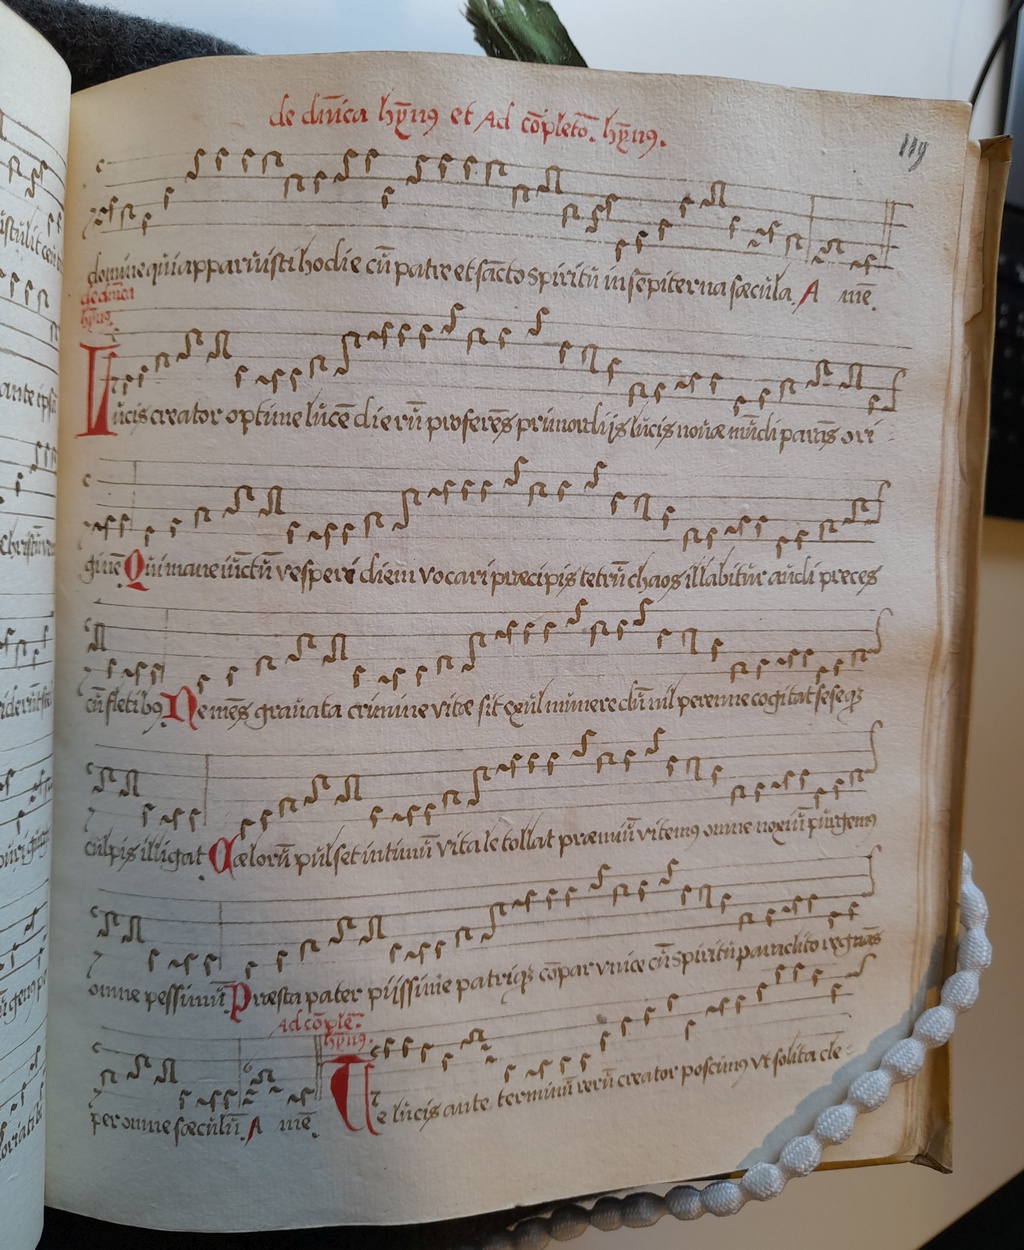 de dn̄ica hȳn9 et Ad cōpleto᷒. hȳn9.
119
domine qui apparuisti hodie cū patre et sācto spiritū in sēpiterna sæcula. A mē.
de dn̄ica
hȳn9.
Lucis creator optime lucē dierū proferēs primordijs lucis nouæ mūdi parās ori
ginē Qui mane iūctū vesperi diem vocari præcipis tetrū chaos illabitur audi preces
cū fletib9 Ne mēs grauata crimine vitæ sit exul munere dū nil perenne cogitat seseqꝫ
culpis illigat Cælorū pulset intimū vitale tollat præmiū vitem9 omne noxiū purgem9
omne pessimū Præsta pater piissime patriqꝫ cōpar vnice cū spiritu paraclito regnās
Ad cōple᷒.
hȳn9.
per omne sæculū. A mē. Te lucis ante terminū rerū creator poscim9 vt solita cle